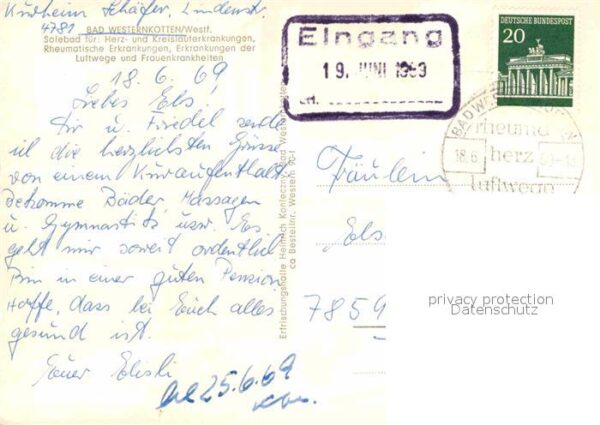 Kurheim Schäfer, Lindenstr.
4781 BAD WESTERNKOTTEN/Westf.
Solebad für: Herz- und Kreislauferkrankungen,
Rheumatische Erkrankungen, Erkrankungen der
Luftwege und Frauenkrankheiten
18.6.69
Liebes Els,
Dir u. Friedel sende
ich die herzlichsten Grüsse
von einem Kuraufenthalt.
Bekomme Bäder, Massagen
u. Gymnastik usw. Es
geht mir soweit ordentlich
Bin in einer guten Pension
Hoffe, dass bei Euch alles
gesund ist.
Euer
25.6.69
Erfrischungshalle Heinrich Bad Westernkotten
Bestellnr. Western
Eingang
19. JUNI 1969
DEUTSCHE BUNDESPOST
20
BAD WESTERNKOTTEN
rheuma
18.6. herz
luftwege
Fräulein
Els
7859
privacy protection
Datenschutz